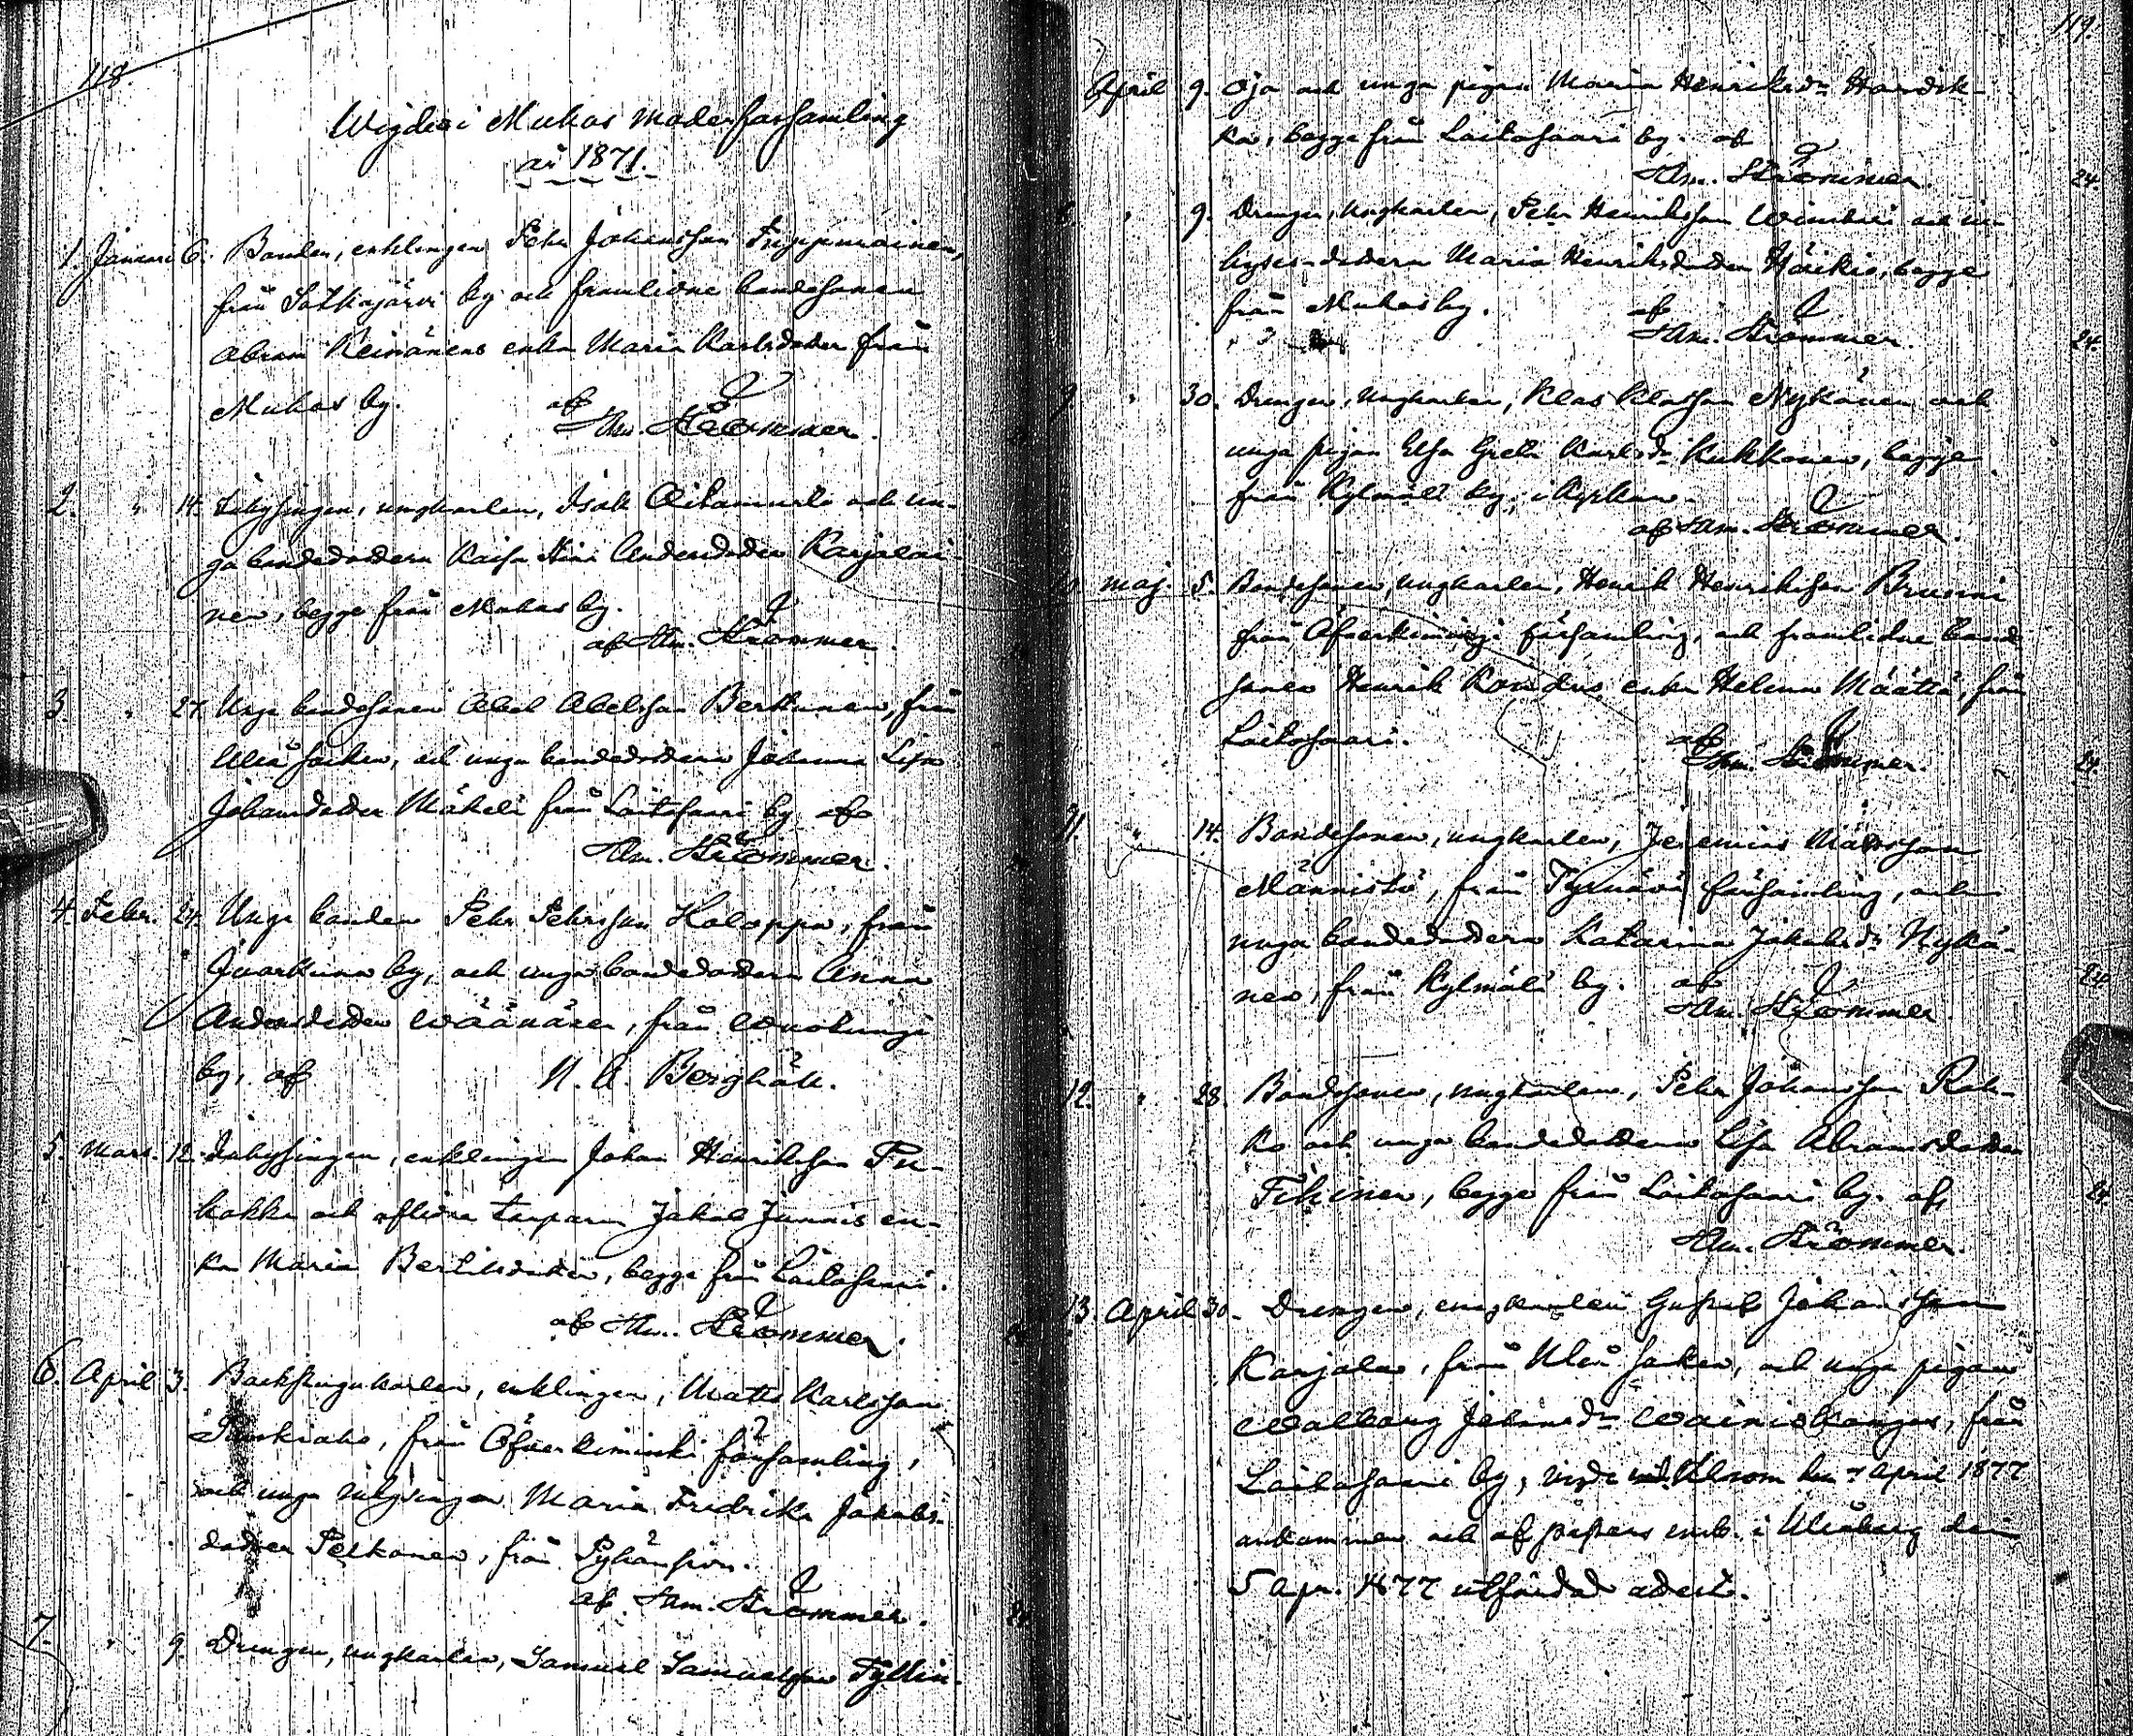 118.
Wigde i Muhos moderförsamling
år 1871.
1. Januari 6. Bonden, enklingen Pehr Johansson
från Sotkajärvi by och framlidne bondesonen
Abram Keinänens enka Maria Karlsdotter från
Muhos by. af
Hm. Strömmer.
2. " 14. Inhysingen, ungkarlen, Isak och un-
ga bondedottern Kaisa Stina Andersdotter Karjalai-
nen, begge från Muhos by.
af Hm. Strömmer.
3. " 27. Unge bondesonen Abel Abelsson Berttunen, från
Uleå socken, och unga bondedottern Johanna Lisa
Johansdotter Mäkelä från Laitasaari by af
Hm. Strömmer.
4. Febr. 24. Unge bonden Pehr Pehrsson Holappa, från
by, och unga bondedottern Anna
Andersdotter Wäänänen, från
by, af N. A. Berghäll.
5. Mars. 12. Inhysingen, enklingen Johan Henriksson Pu-
hakka och aflidne torparen Jakob Junnis en-
ka Maria Bertilsdotter, begge från Laitasaari.
af Hm. Strömmer.
6. April 3. Backstugukarlen, enklingen, Matts Karlsson
från Öfverkiminki församling,
och unga inhysingen Maria Fredrika Jakobs-
dotter Pelkonen, från
af Hm. Strömmer.
7. " 9. Drengen, ungkarlen, Samuel Samuelsson Tyllin-
119.
April 9. oja och unga pigan Maria Henriksdr Hardik-
ka, begge från Laitasaari by. af
Hm. Strömmer. 24.
8. " 9. Drengen, ungkarlen, Pehr Henriksson och in-
hyses-dottern Maria Henriksdotter Häikiö, begge
från Muhos by. af
Hm. Strömmer. 24.
9. " 30. Drengen, ungkarlen, Klas Klasson Nykänen och
unga pigan Elsa Greta Karlsdr Kukkonen, begge
från Kylmälä by, i kyrkan
af Hm. Strömmer.
10. Maj. 5. Bondesonen, ungkarlen, Henrik Henriksson Bruuni
från Öfverkiminge församling, och framlidne bonde
sonen Henrik enka Helena Määttä, från
Laitasaari. af
Hm. Strömmer. 24.
11. " 14. Bondesonen, ungkarlen, Jeremias Matsson
Männistö, från Tyrnävä församling, och
unga bondedottern Katarina Jakobsdr Nykä-
nen, från Kylmälä by. af 24
Hm. Strömmer.
12. " 28. Bondesonen, ungkarlen, Pehr Johansson Rok-
ko och unga bondedottern Lisa Abramsdotter
Tikinen, begge från Laitasaari by. af 24
Hm. Strömmer.
13. April 30. Drengen, ungkarlen Gustaf Johansson
Karjala, från Uleå socken, och unga pigan
Walborg Johansdr Wainionkangas, från
Laitasaari by, den 7 April 1877
ankommen och af i Uleåborg den
5 Apr. 1877 utfärdad attest.